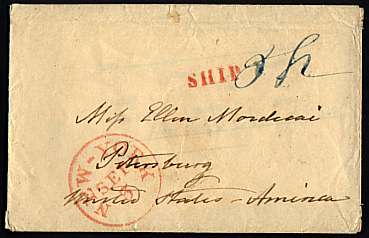 SHIP
Miss Ellen Mordecai
Petersburg
United States - America
NEW-YORK
SEP